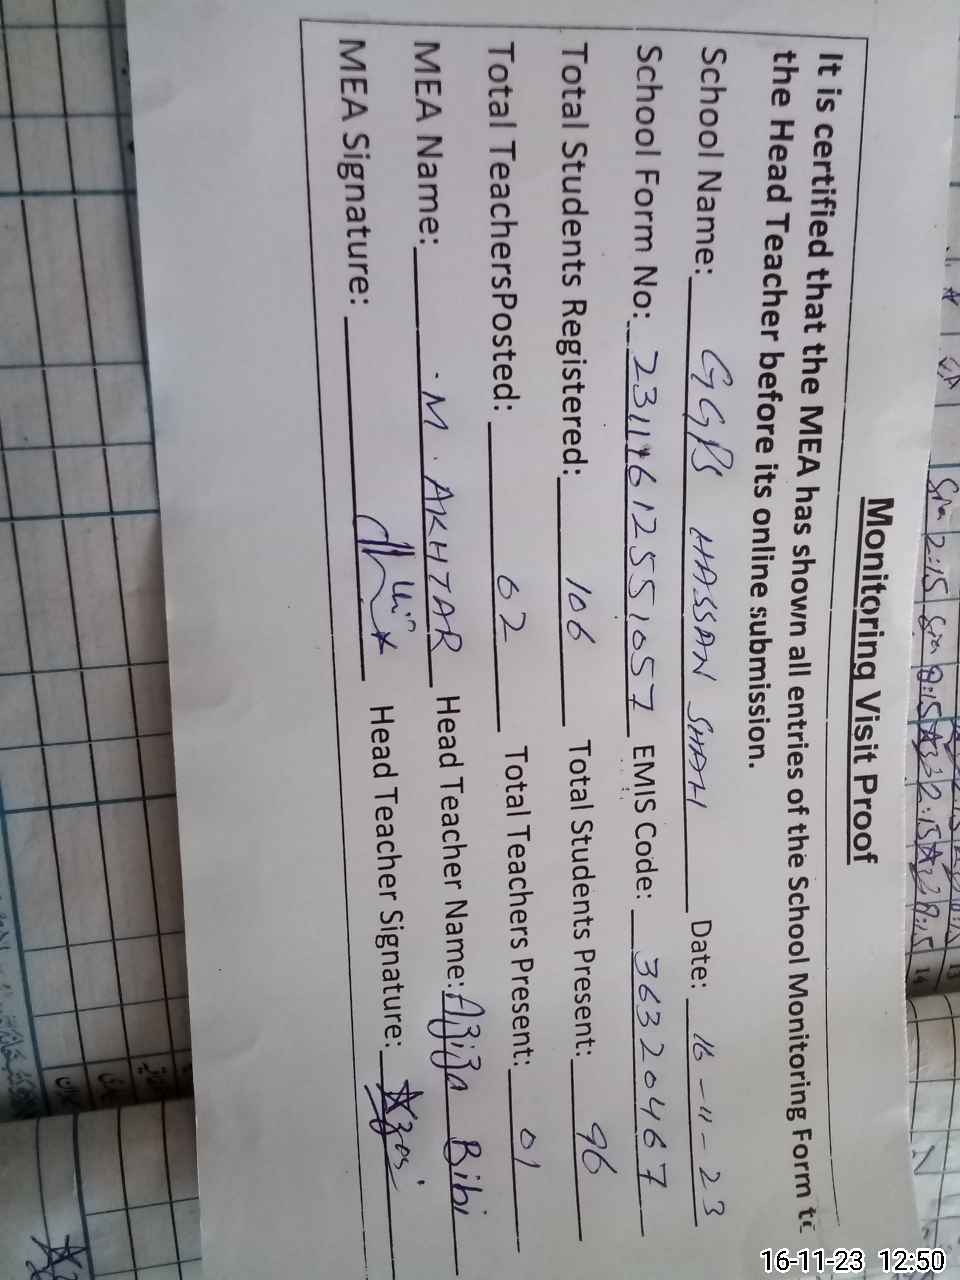 Monitoring Visit Proof
It is certified that the MEA has shown all entries of the School Monitoring Form to
the Head Teacher before its online submission.
School Name: GGPS HASSAN SHAH Date: 16-11-23
School Form No: 23111612551057 EMIS Code: 36320467
Total Students Registered: 106 Total Students Present: 96
Total TeachersPosted: 02 Total Teachers Present: 01
MEA Name: M. AKHTAR Head Teacher Name: Aziza Bibi
MEA Signature: Head Teacher Signature:
16-11-23 12:50